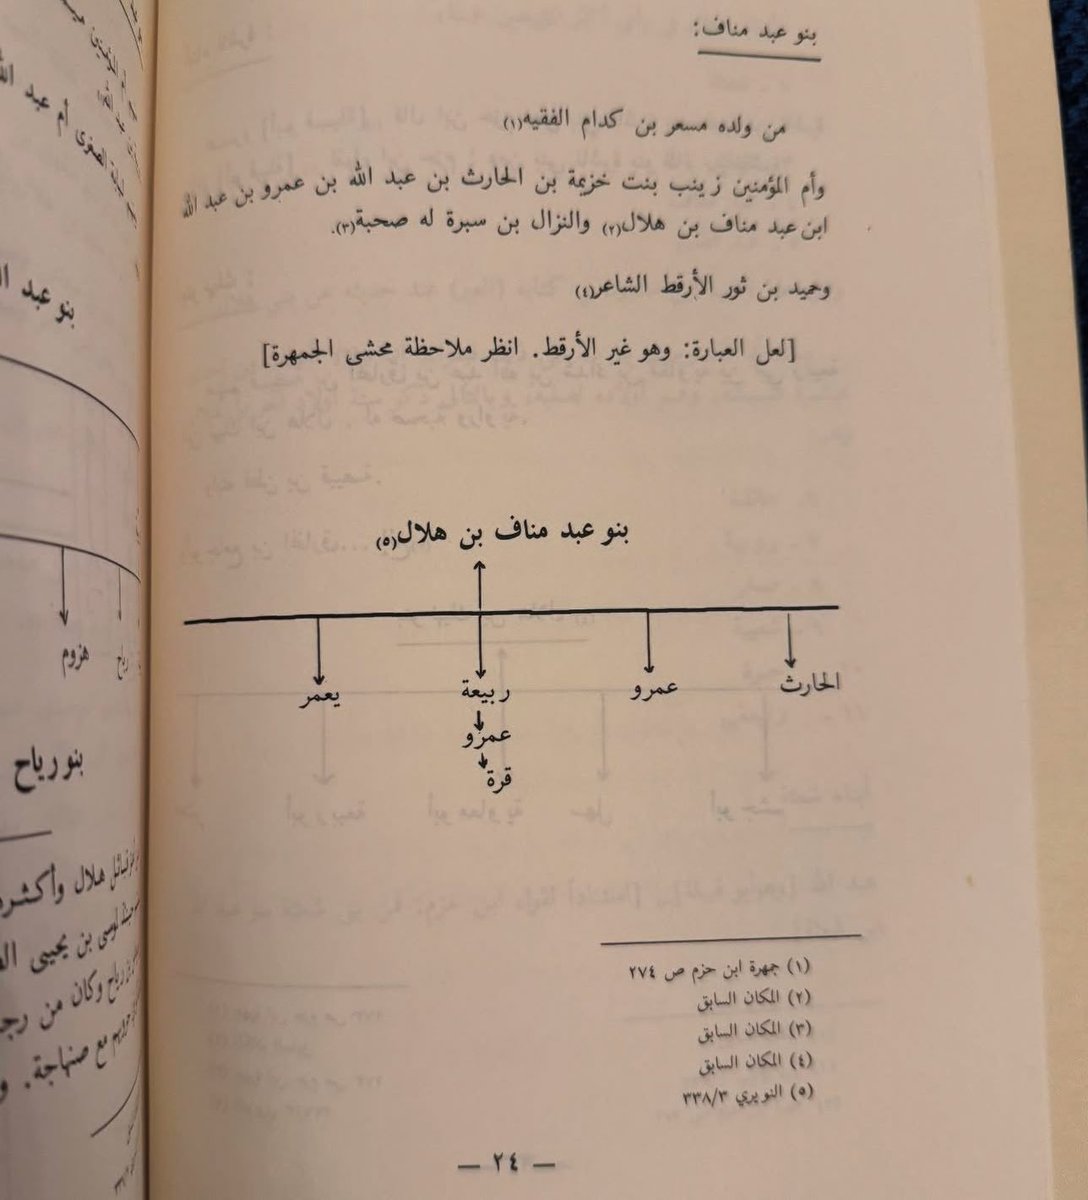 بنو عبد مناف:
من ولده مسعر بن كدام الفقيه(١)
وأم المؤمنين زينب بنت خزيمة بن الحارث بن عبد الله بن عمرو بن عبد الله
ابن عبد مناف بن هلال(٢) والنزال بن سبرة له صحبة(٣).
وحميد بن ثور الأرقط الشاعر(٤)
[لعل العبارة: وهو غير الأرقط. انظر ملاحظة محشي الجمهرة]
بنو عبد مناف بن هلال(٥)
الحارث عمرو ربيعة يعمر
عمرو
قرة
(١) جمهرة ابن حزم ص ٢٧٤
(٢) المكان السابق
(٣) المكان السابق
(٤) المكان السابق
(٥) النويري ٣٣٨/٣
— ٢٤ —
الصغرى أم عبد الله
بنو عبد
هزوم
رياح
بنو رياح
قبائل هلال وأكثر
بن يحيى
رياح وكان من
مع صنهاجة. و